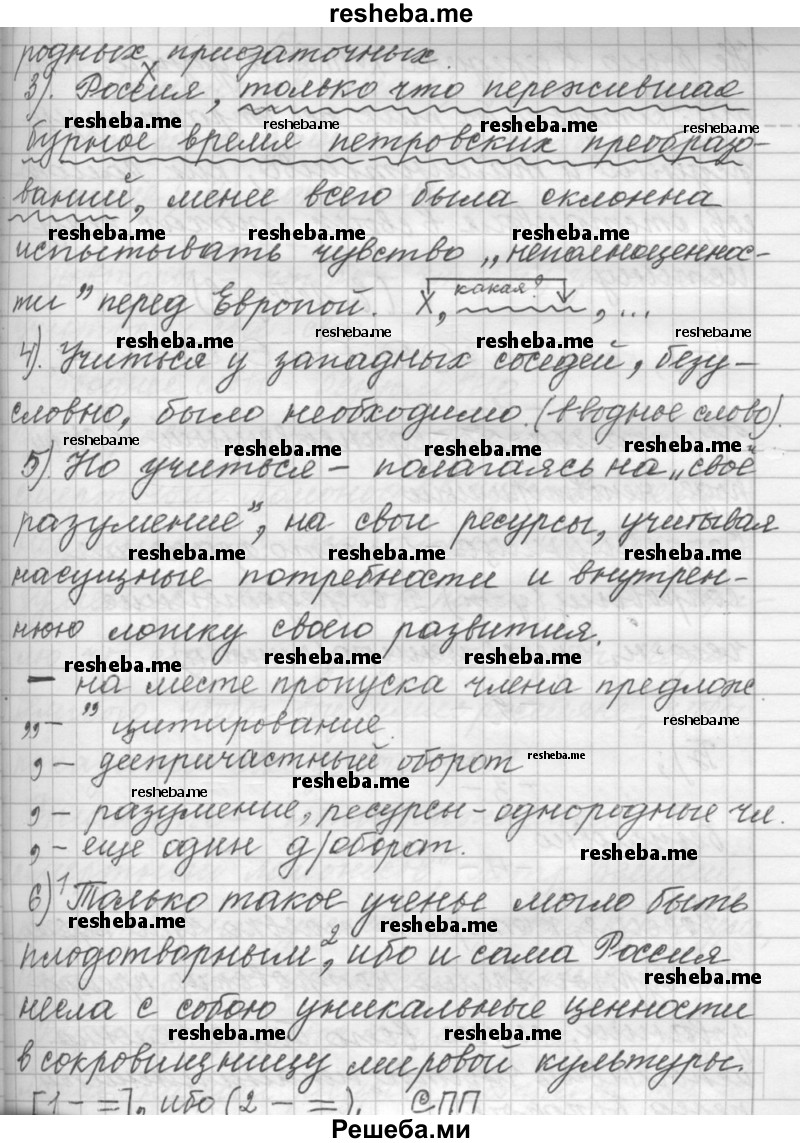 resheba.me
родных придаточных.
3). Россия, только что пережившая
resheba.me resheba.me resheba.me resheba.me
бурное время петровских преобразо-
ваний, менее всего была склонна
resheba.me resheba.me resheba.me resheba.me
испытывать чувство „неполноценнос-
ти” перед Европой. X, какая? , ...
resheba.me resheba.me resheba.me resheba.me
4). Учиться у западных соседей, безу-
словно, было необходимо. (вводное слово).
resheba.me resheba.me resheba.me resheba.me
5). Но учиться – полагаясь на „свой
разумение”, на свои ресурсы, учитывая
resheba.me resheba.me resheba.me
насущные потребности и внутрен-
нюю логику своего развития.
resheba.me resheba.me resheba.me
– на месте пропуска члена предлож
„ – ” цитирование.
resheba.me
, – деепричастный оборот
resheba.me resheba.me
resheba.me
, – разумение, ресурсы – однородные чл.
, – еще один д/оборот.
resheba.me
6) ¹Только такое ученье могло быть
resheba.me resheba.me
плодотворным, ²ибо и сама Россия
resheba.me
несла с собою уникальные ценности
resheba.me resheba.me
в сокровищницу мировой культуры.
[1 – =], ибо (2 – =). СПП
Решеба.ми